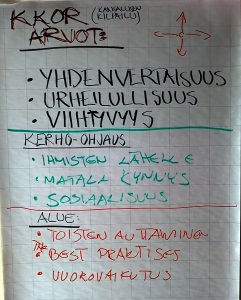 KKOR (KANSALLISEN
KILPAILU)
ARVOT:
• YHDENVERTAISUUS
• URHEILULLISUUS
• VIIHTYVYYS
KERHO-OHJAUS
• IHMISTEN LÄHELLE
• MATALA KYNNYS
• SOSIAALISUUS
ALUE:
• TOISTEN AUTTAMINEN
• THE BEST PRAKTISES
• VUOROVAIKUTUS